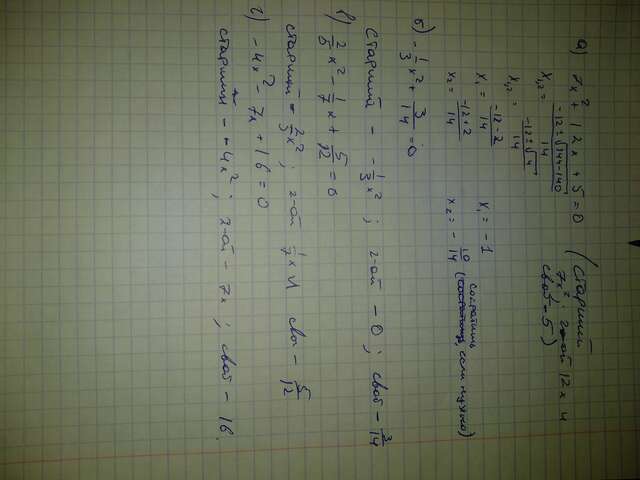 а) 7x² + 12x + 5 = 0 (старший 7x²; 2-ой 12x и своб - 5)
x₁,₂ = (-12 ± √(144-140))/14
x₁,₂ = (-12 ± √4)/14
x₁ = (-12-2)/14 x₁ = -1
x₂ = (-12+2)/14 x₂ = -10/14 (сократить, если нужно)
б) -1/3x² + 3/14 = 0
старший - -1/3x²; 2-ой - 0; своб - 3/14
в) 2/5x² - 1/7x + 5/12 = 0
старший - 2/5x²; 2-ой 1/7x и сво - 5/12
г) -4x² - 7x + 16 = 0
старший - -4x²; 2-ой - 7x; своб - 16.